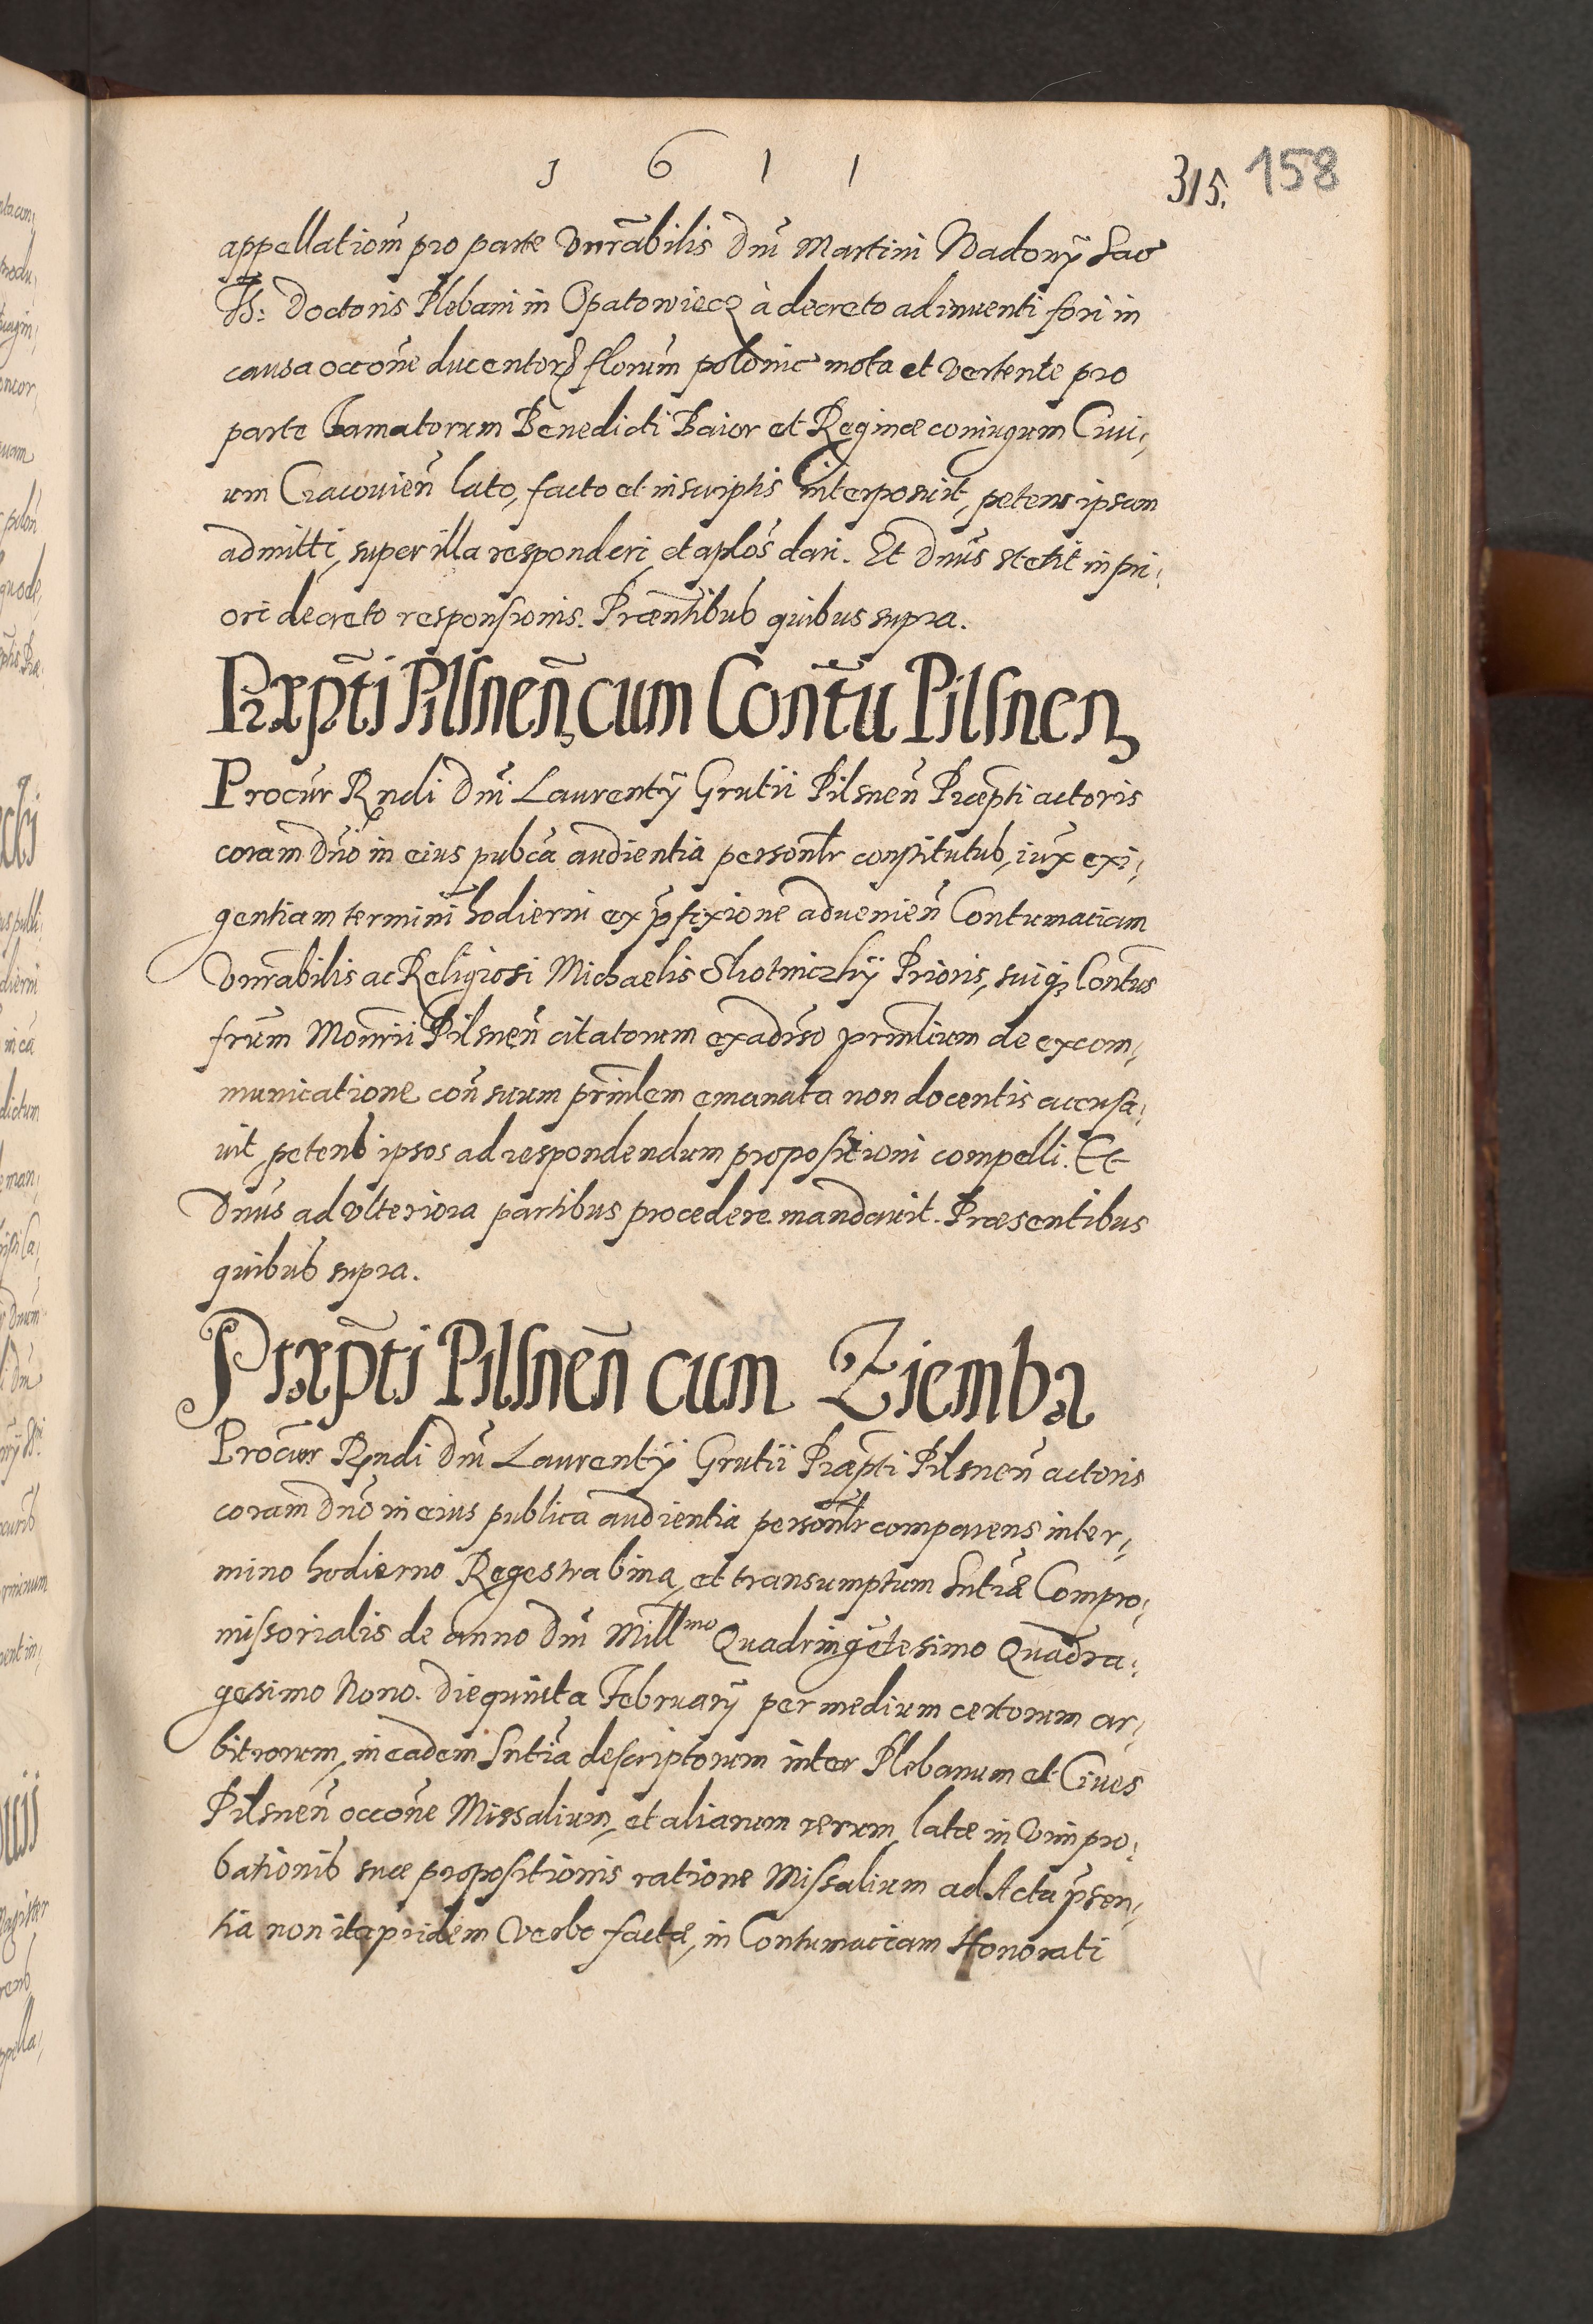 1 6 1 1
315. 158
appellationẽ pro parte Vnrãbilis Dnĩ Martini Nadonÿ Sac
Th: Doctoris Plebani in Opatowiecz à decreto adinuenti fori in
causa occõne ducentorũ florum polonic mota et vertente pro
parte Famatorum Benedicti Baior et Reginæ coniugum Ciui,
um Cracouieñ lato, facto et in scriptis interposuit, petens ipsam
admitti, super illa responderi, et aplõs dari. Et Dnũs stetit in pri,
ori decreto responsionis. Præntibus quibus supra.
Præpti Pilsneñ cum Conũtu Pilsneñ
Procur Rndi Dnĩ Laurentÿ Grutii Pilsneñ Præpti actoris
coram Dnõ in eius pubca audientia personlr constitutus, iux exi,
gentiam termini hodierni ex pfixione aduenieñ Contumaciam
Vnrãbilis ac Religiosi Michaelis Slotniczkÿ Prioris, suiq Contus
frum Monrii Pilsneñ citatorum ex aduso prinlium de excom,
municatione coñ suum prinlem emanata non docentis accusa,
uit, petens ipsos ad respondendum propositioni compelli. Et
Dnũs ad vlteriora partibus procedere mandauit. Præsentibus
quibus supra.
Præpti Pilsneñ cum Ziemba
Procur Rndi Dnĩ Laurentÿ Grutii Præpti Pilsneñ actoris
coram Dnõ in eius publica audientia personlr comparens in ter,
mino hodierno Regestra bina, et transumptum Sntiæ Compro,
missorialis de anno Dnĩ Mill͞mo Quadringẽtesimo Quadra,
gesimo Nono. Die quinta Februarÿ per medium certorum ar,
bitrorum, in eadem Sntia descriptorum inter Plebanum et Ciues
Pilsneñ occõne Missalium, et aliarum rerum, latæ in vim pro,
bationis suæ propositionis ratione Missalium ad Acta psen,
tia non ita pridem verbo factæ, in Contumaciam Honorati